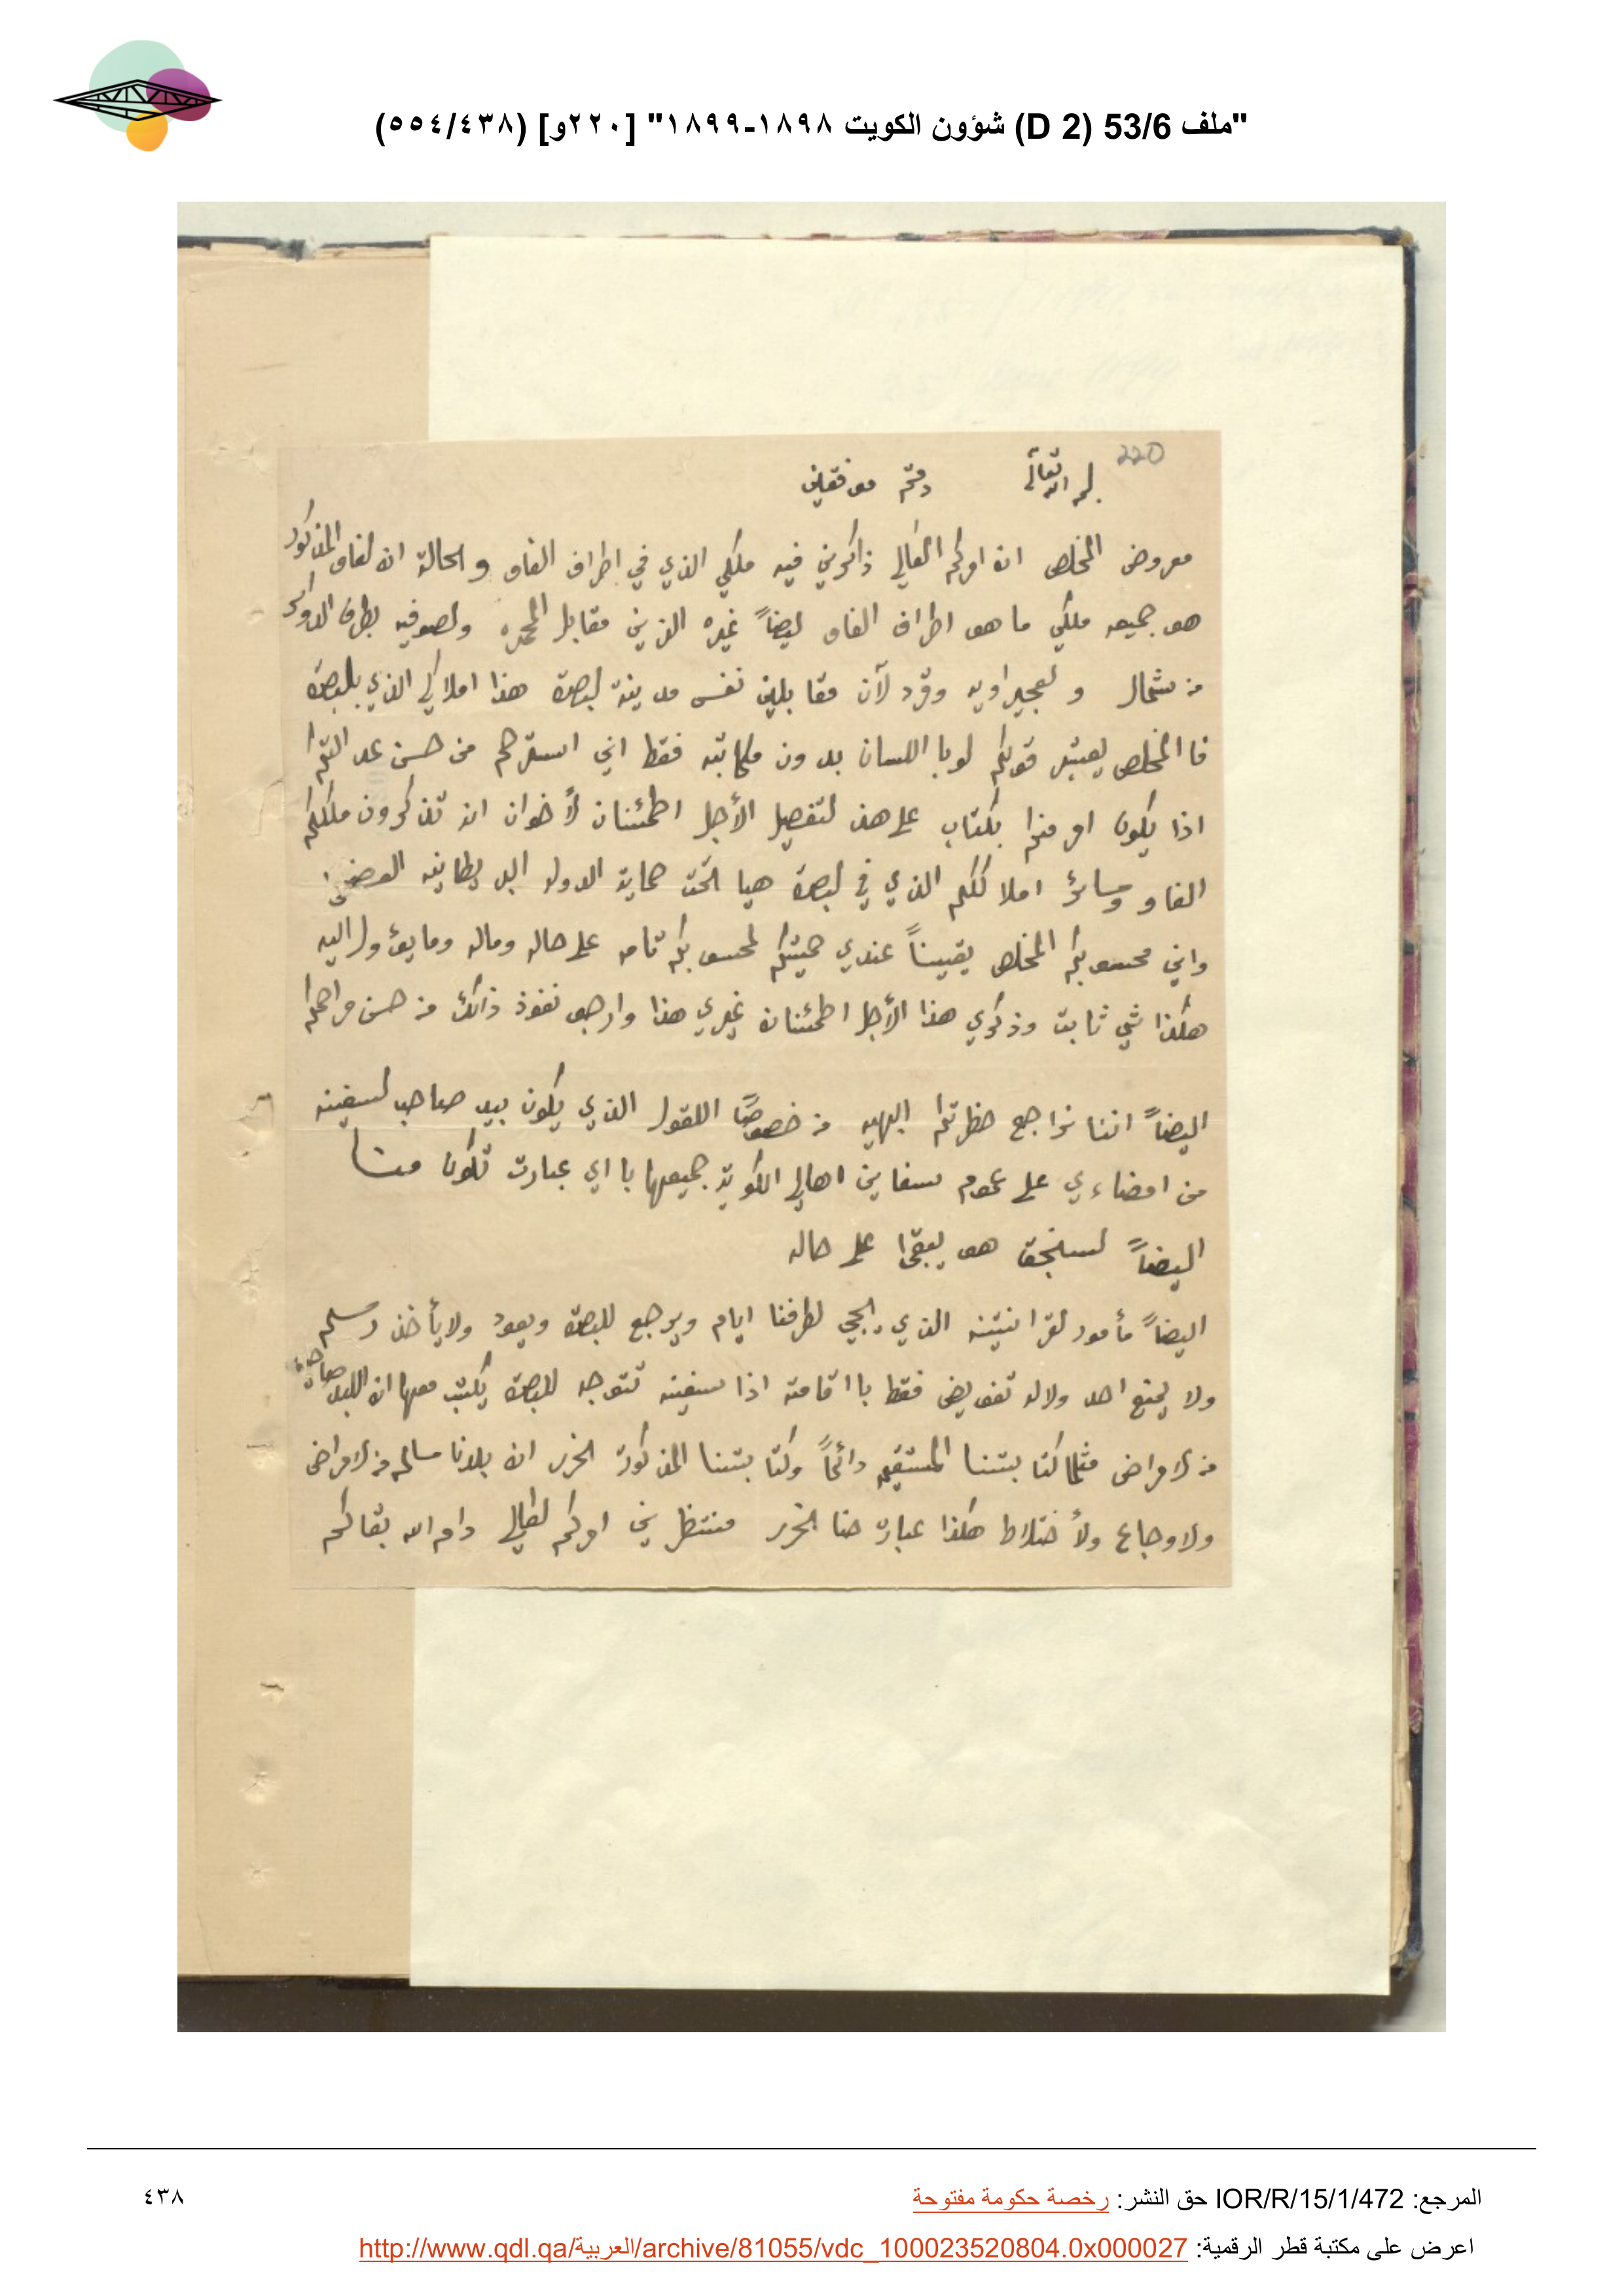 "ملف 53/6 (D 2) شؤون الكويت ١٨٩٨-١٨٩٩" [٢٢٠و] (٥٥٤/٤٣٨)
220
بسم الله تعالى دمتم موفقين
معروض المخلص ان امركم العالي ذاكرين فيه ملكي الذي في اطراف الفاو والحالة ان لفاو المذكور
هو جميعه ملكي ما هو اطراف الفاو ايضاً غيره الذين مقابل المحمره ولصوفيه بطرف الدواسر
من شمال ولعجيراويه مقابلين نفس مدينة لبصرة هذا املاكي الذي بلبصرة
فا المخلص يعتبر قولكم لوبا اللسان بدون مكاتبه فقط اني استرحم من حسن
اذا يكون امر منكم بكتاب على هذ لتفصيل الأجل اطمئنان لأخوان ان تذكرون ملككم
الفاو وسائر املاككم الذي في لبصرة هيا تحت حماية الدوله البريطانيه
واني محسوبكم المخلص يقيناً عندي حميتكم لمحسوبكم تامه على حاله وماله وما يؤول اليه
هكذا شي ثابت وذكري هذا الأجل اطمئنان غيري هذا وارجو نفوذ ذالك من حسن مراحمكم
اليضاً اننا نراجع حظرتكم البهيه من خصوصاً اللقول الذي يكون بيد صاحب لسفينه
من امضاءي على عموم سفاين اهالي الكويت جميعها با اي عبارت تكون منا
اليضاً لسنجق هو يبقى على حاله
اليضاً مأمور لقرانتينه الذي يجي لطرفنا ايام ويرجع للبصرة ويعود ولا يأخذ رسم
ولا يمنع احد ولاله تفويض فقط با اقامته اذا سفينه تتوجه للبصرة يكتب معها ان اللبلد
من لامراض مثلما كتابتنا المستقيمه دائماً وكتابتنا المذكورة نحرر ان بلدنا سالمه من لامراض
ولاوجاع ولأختلاط هكذا عبارت حنا نحرر منتظرين امركم لعالي دام الله بقاكم
المرجع: IOR/R/15/1/472 حق النشر: رخصة حكومة مفتوحة
٤٣٨
اعرض على مكتبة قطر الرقمية: http://www.qdl.qa/العربية/archive/81055/vdc_100023520804.0x000027